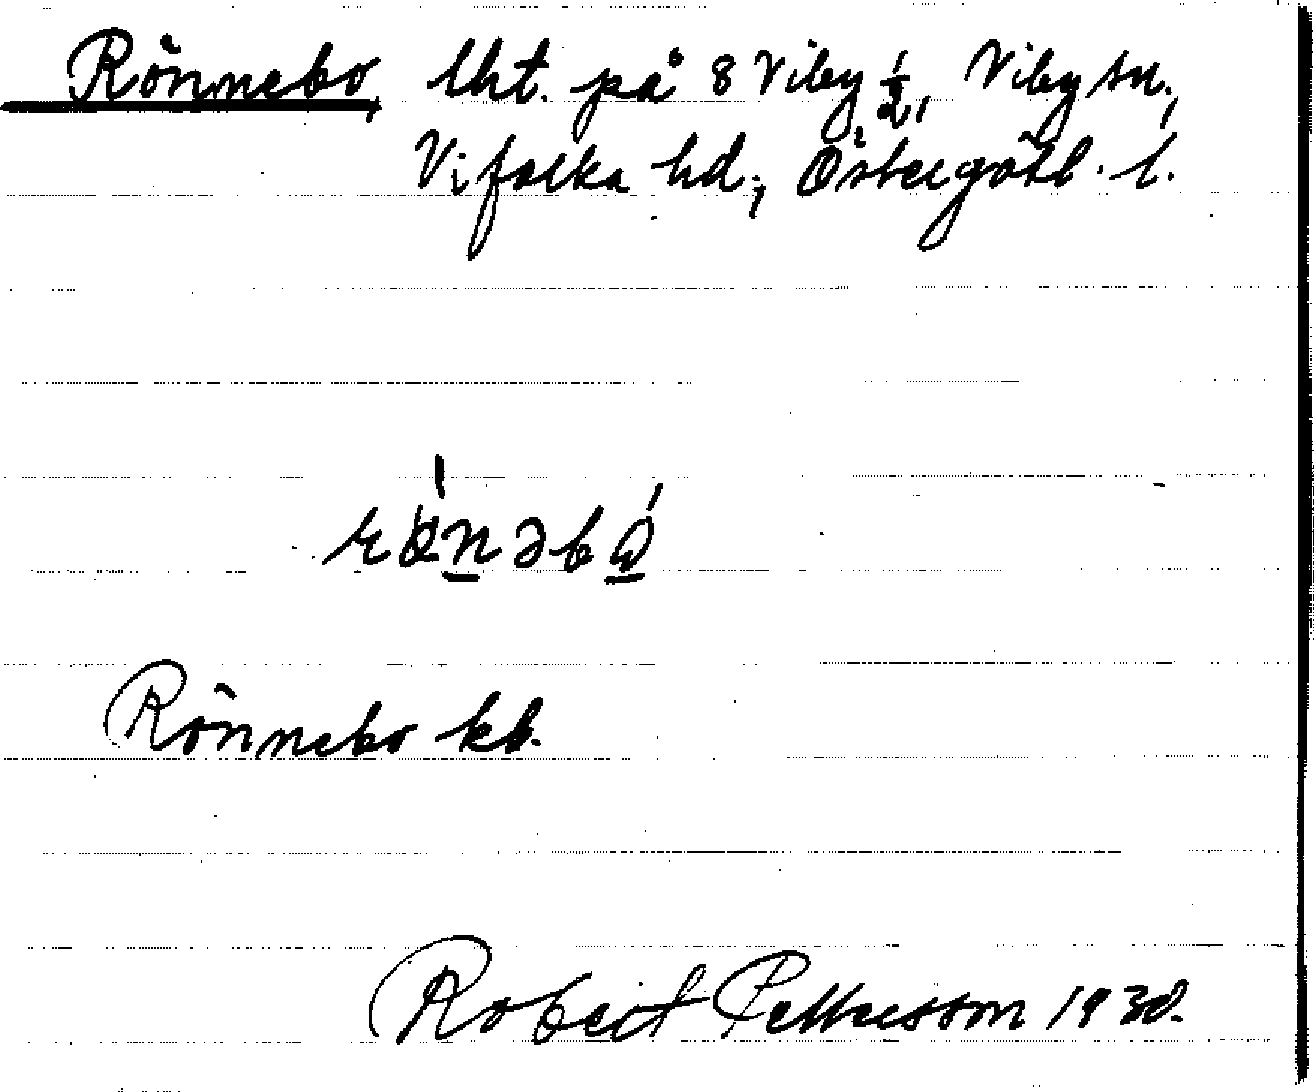 Rönnebo, lht. på 8 Viby 1/2, Viby sn.,
Vifolka hd., Östergötl. l.
Rönnebo kb.
Robert Pettersson 1930.